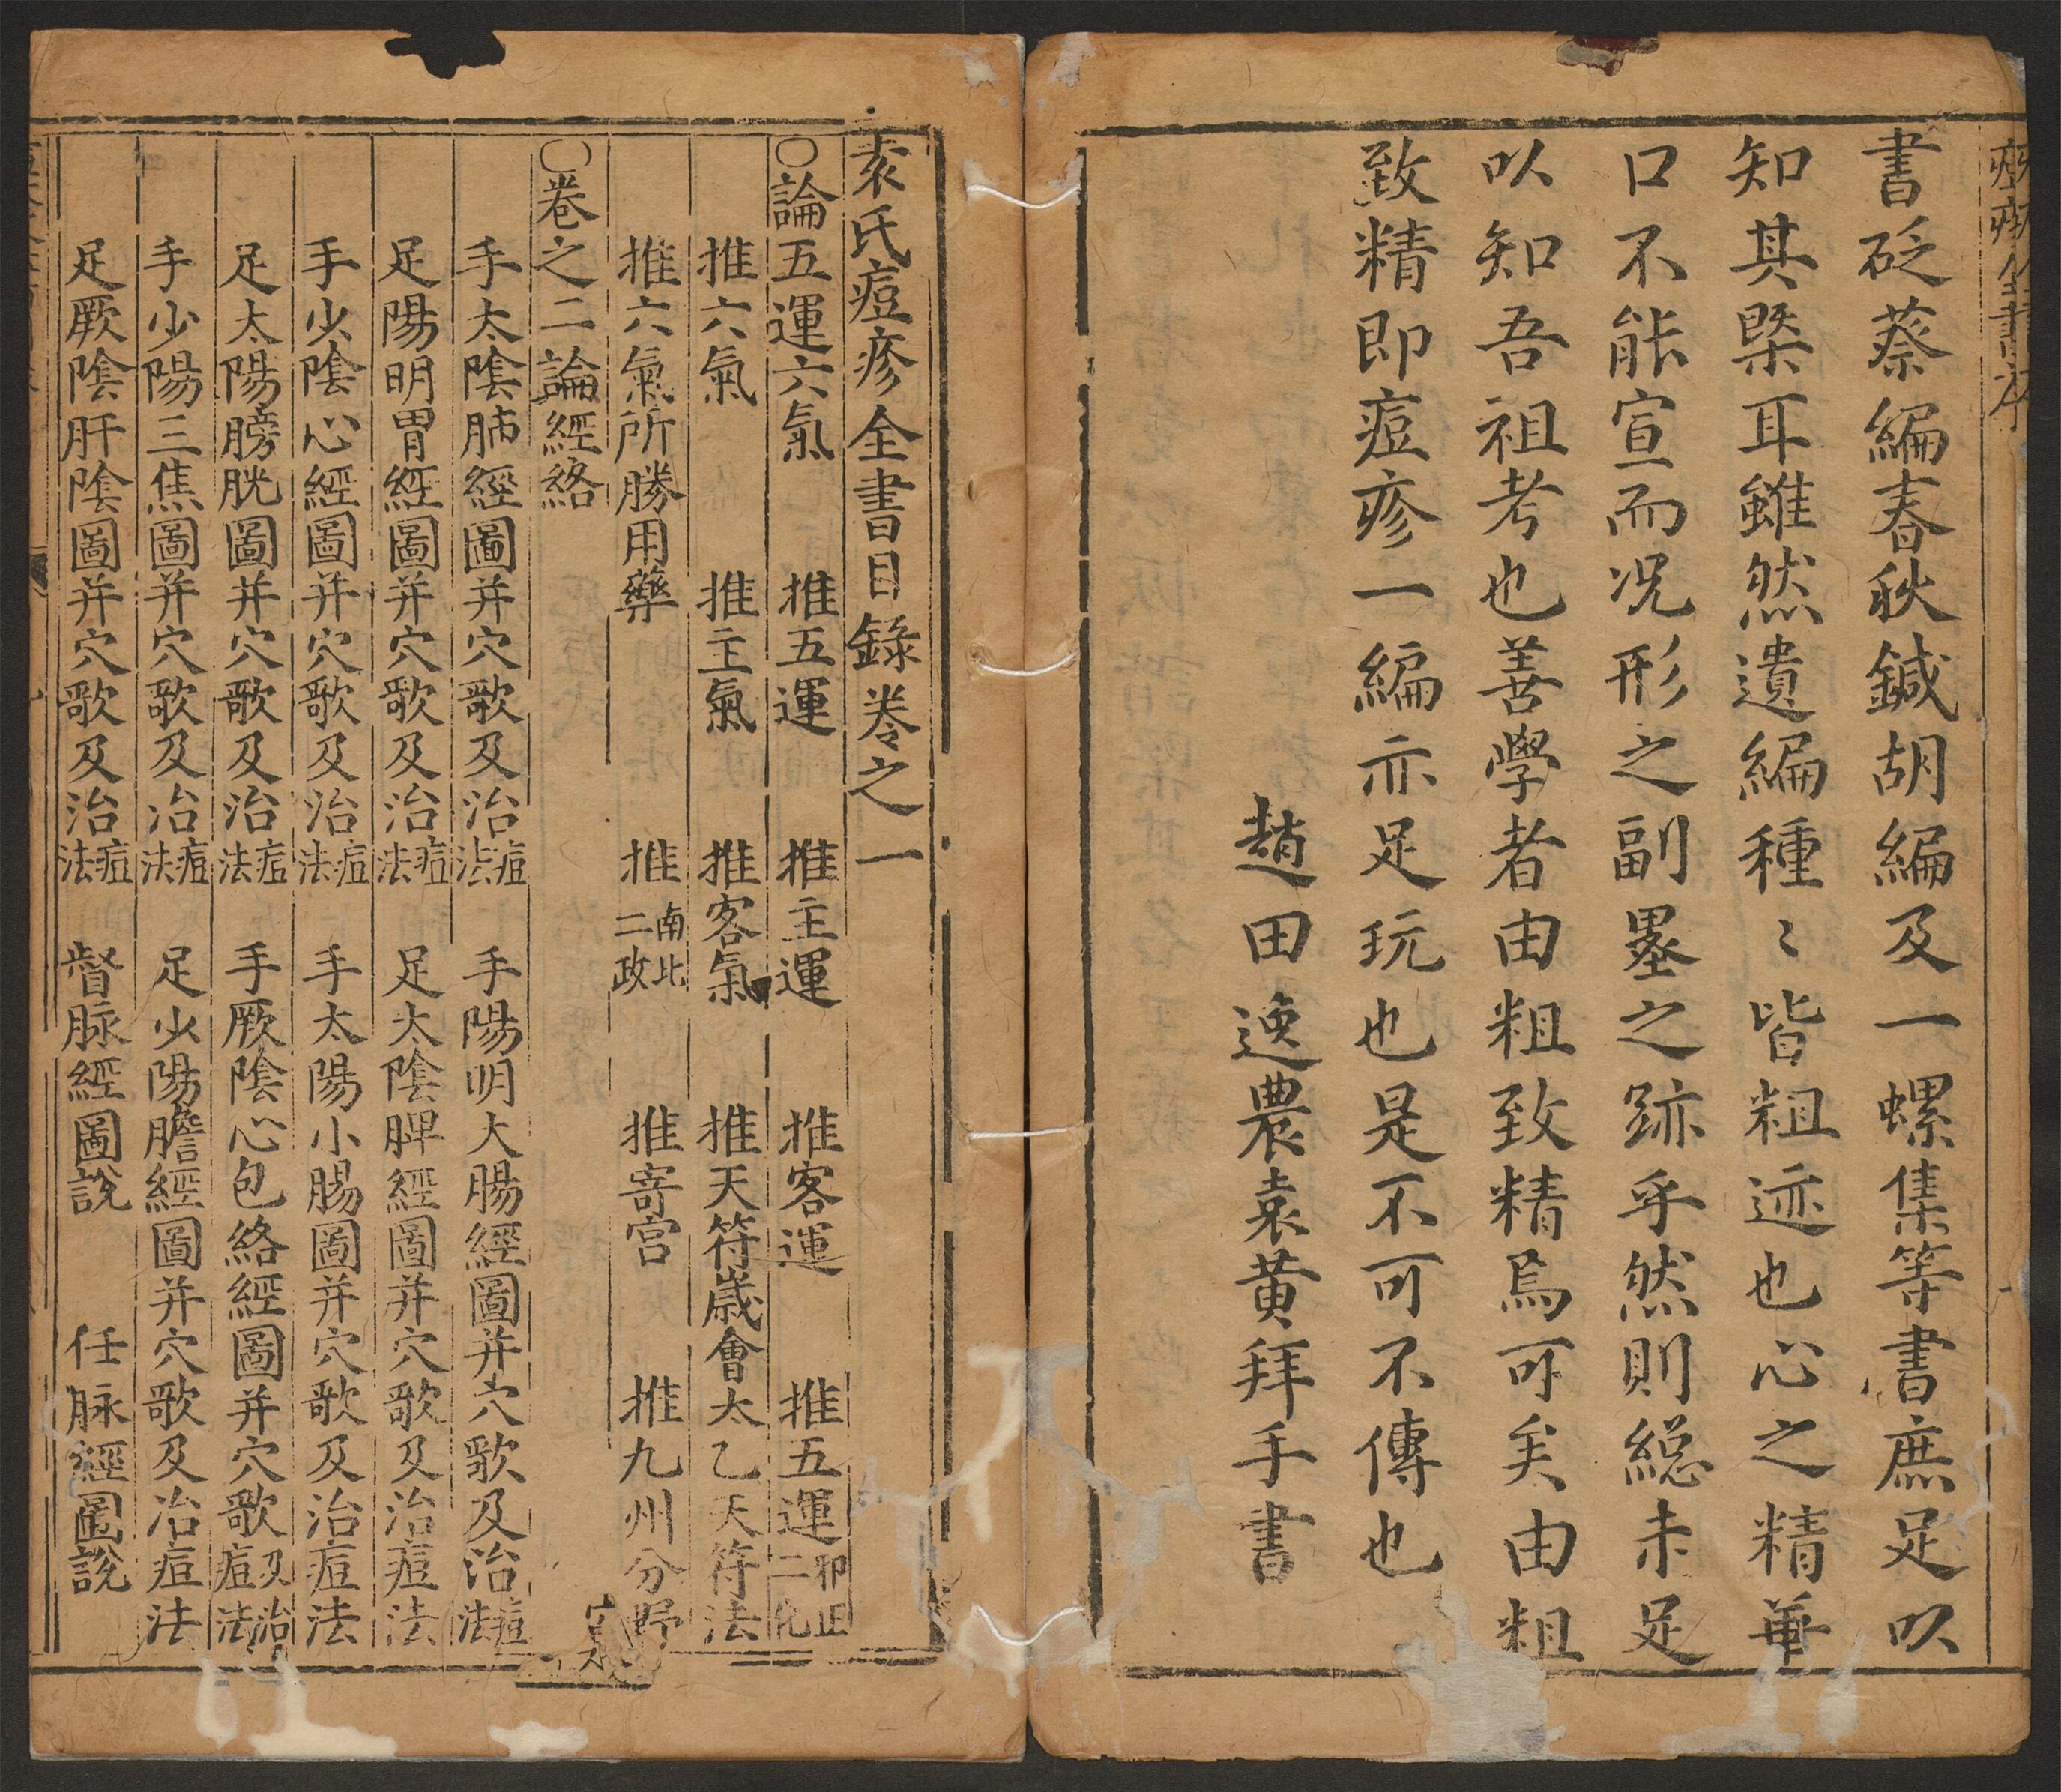 痘疹全書序
書砭蔡編春秋鍼胡編及一螺集等書庶足以
知其槩耳雖然遺編種〻皆粗迹也心之精華
口不能宣而况形之副墨之跡乎然則緫未足
以知吾祖考也善學者由粗致精焉可矣由粗
致精即痘疹一編亦足玩也是不可不傳也
趙田逸農袁黃拜手書
袁氏痘疹全書目錄卷之一
○論五運六氣 推五運 推主運 推客運 推五運邪正二化
推六氣 推主氣 推客氣 推天符歲會太乙天符法
推六氣所勝用藥 推南北二政 推寄宮 推九州分野
○卷之二論經絡
手太陰肺經圖并穴歌及治痘法 手陽明大腸經圖并穴歌及治痘法
足陽明胃經圖并穴歌及治痘法 足太陰脾經圖并穴歌及治痘法
手少陰心經圖并穴歌及治痘法 手太陽小腸圖并穴歌及治痘法
足太陽膀胱圖并穴歌及治痘法 手厥陰心包絡經圖并穴歌及治痘法
手少陽三焦圖并穴歌及治痘法 足少陽膽經圖并穴歌及治痘法
足厥陰肝陰圖并穴歌及治痘法 督脉經圖說 任脉經圖說